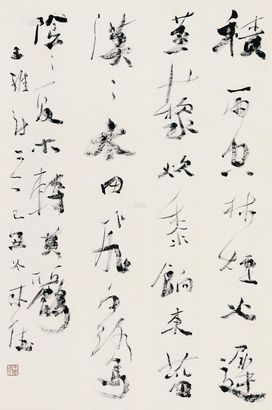 積雨空林煙火遲
蒸藜炊黍餉東菑
漠〻水田飛白鷺
陰〻夏木轉黃鸝
王維詩 己丑冬